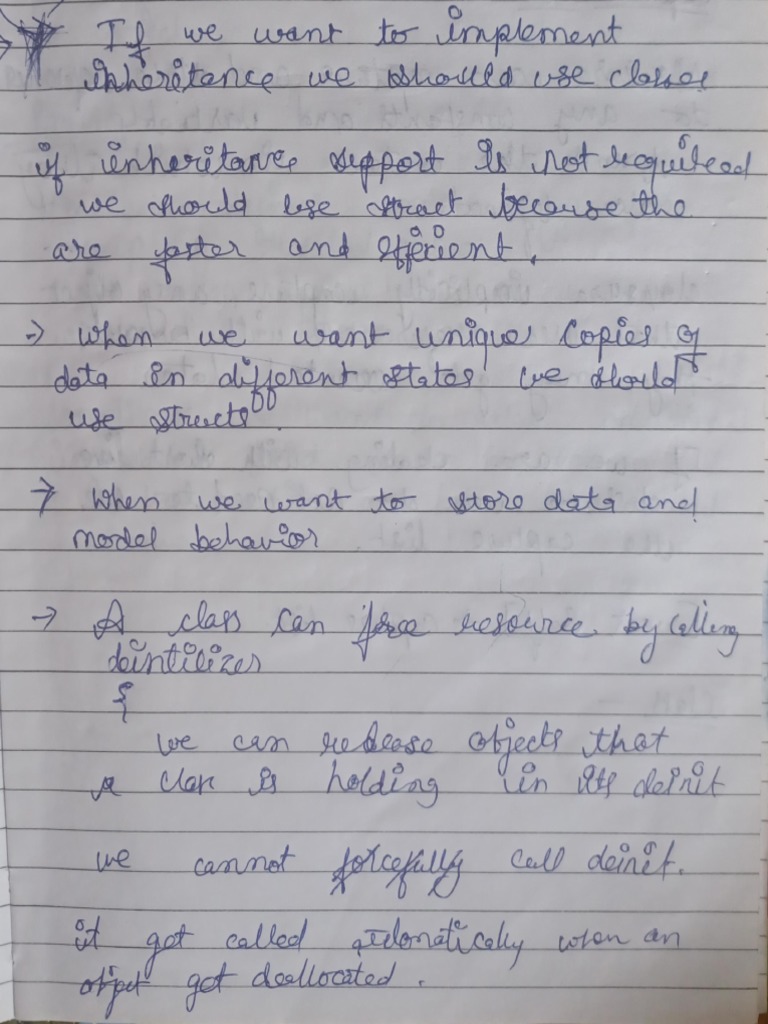 → If we want to implement
inheritance we should use classes
if inheritance support is not requitead
we should use struct because the
are faster and efferient.
→ when we want unique copies of
data in different states we should
use structs
→ When we want to store data and
model behavior
→ A class can free resource by calling
deintilizer
{
we can release objects that
a class is holding in its deinit
we cannot forcefully call deinit.
it get called automatically when an
object get deallocated.